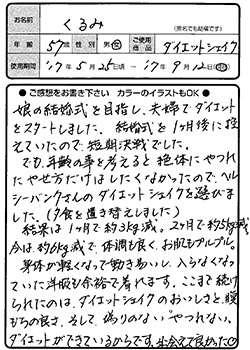 お名前 くるみ
(匿名でも結構です)
年齢 57歳 性別 男・女 ご使用商品 ダイエットシェイク
使用期間 '17年5月25日頃 〜 '17年9月12日
●ご感想をお書き下さい カラーのイラストもOK●
娘の結婚式を目指し、夫婦でダイエット
をスタートしました。結婚式を1ヶ月後に控
えていたので、短期決戦でした。
でも、年齢の事を考えると絶体にやつれ
たやせ方だけはしたくなかったので、ヘル
シーバンクさんのダイエットシェイクを選びま
した。(夕食を置き替えしました)
結果は1ヶ月で約3kg減。2ヶ月で約5kg減
今は、約6kg減で、体調も良く、お肌もプルプル。
身体が軽くなって動き易いし、入らなくなっ
ていた洋服も余裕で着れます。ここまで続け
られたのは、ダイエットシェイクのおいしさと、腹
もちの良さ、そして、偽りのない"やつれない。
ダイエットができているからです。出会えて良かった